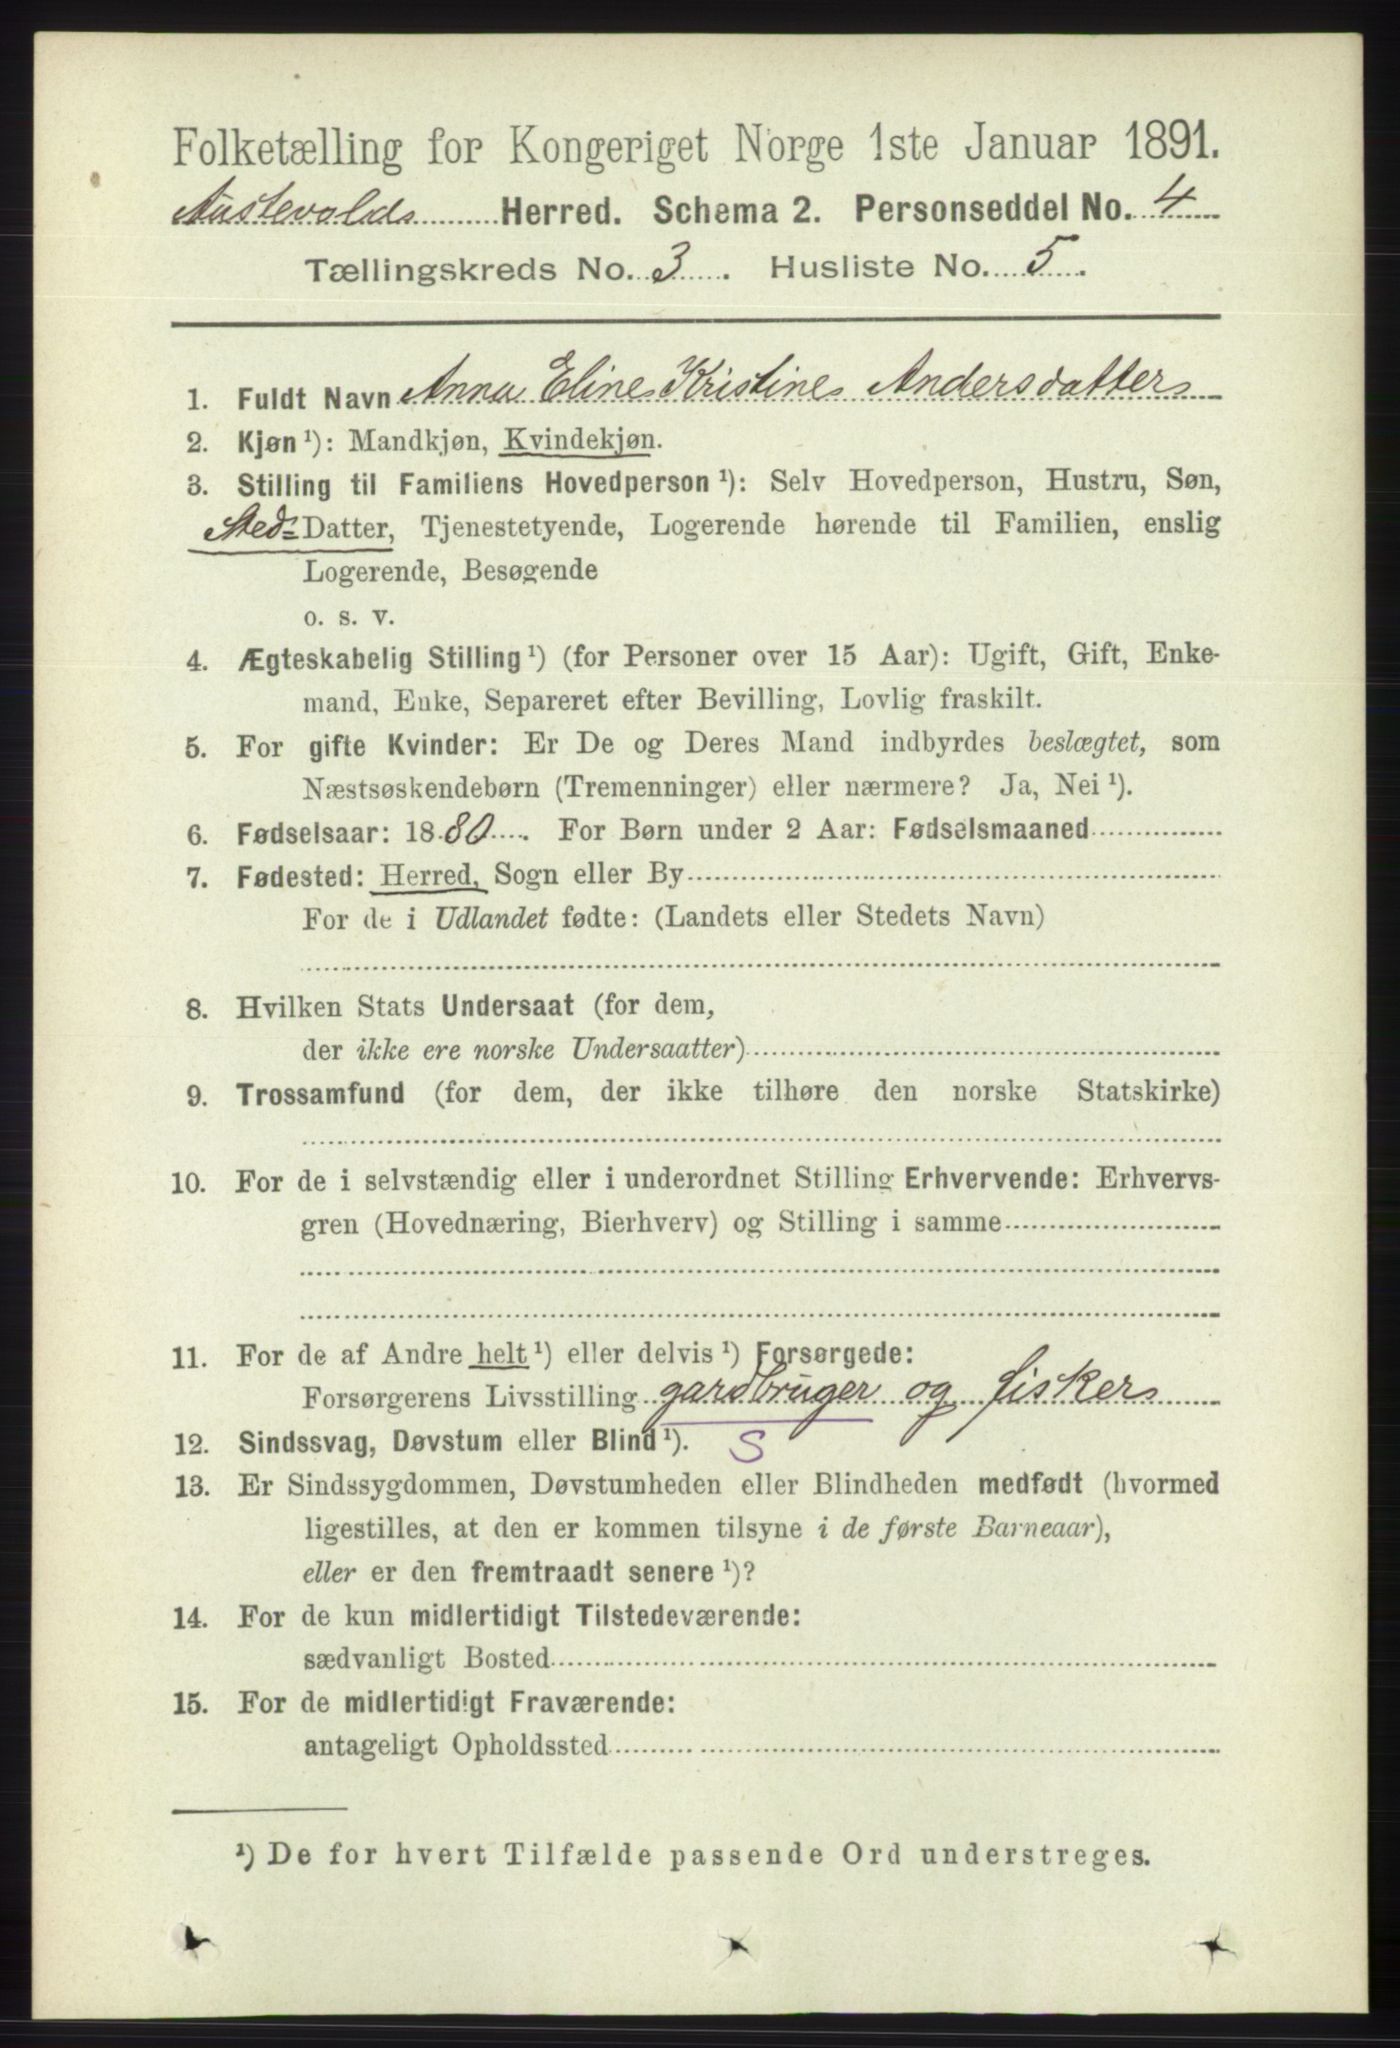 Folketælling for Kongeriget Norge 1ste Januar 1891.
Austevolds Herred. Schema 2. Personseddel No. 4
Tællingskreds No. 3. Husliste No. 5.
1. Fuldt Navn Anna Eline Kristine Andersdatter
2. Kjøn ¹): Mandkjøn, Kvindekjøn.
3. Stilling til Familiens Hovedperson ¹): Selv Hovedperson, Hustru, Søn,
Sted= Datter, Tjenestetyende, Logerende hørende til Familien, enslig
Logerende, Besøgende
o. s. v.
4. Ægteskabelig Stilling ¹) (for Personer over 15 Aar): Ugift, Gift, Enke-
mand, Enke, Separeret efter Bevilling, Lovlig fraskilt.
5. For gifte Kvinder: Er De og Deres Mand indbyrdes beslægtet, som
Næstsøskendebørn (Tremenninger) eller nærmere? Ja, Nei ¹).
6. Fødselsaar: 1880. For Børn under 2 Aar: Fødselsmaaned
7. Fødested: Herred, Sogn eller By
For de i Udlandet fødte: (Landets eller Stedets Navn)
8. Hvilken Stats Undersaat (for dem,
der ikke ere norske Undersaatter)
9. Trossamfund (for dem, der ikke tilhøre den norske Statskirke)
10. For de i selvstændig eller i underordnet Stilling Erhvervende: Erhvervs-
gren (Hovednæring, Bierhverv) og Stilling i samme
11. For de af Andre helt ¹) eller delvis ¹) Forsørgede:
Forsørgerens Livsstilling gardbruger og fisker
12. Sindssvag, Døvstum eller Blind ¹). S
13. Er Sindssygdommen, Døvstumheden eller Blindheden medfødt (hvormed
ligestilles, at den er kommen tilsyne i de første Barneaar),
eller er den fremtraadt senere ¹)?
14. For de kun midlertidigt Tilstedeværende:
sædvanligt Bosted
15. For de midlertidigt Fraværende:
antageligt Opholdssted
¹) De for hvert Tilfælde passende Ord understreges.